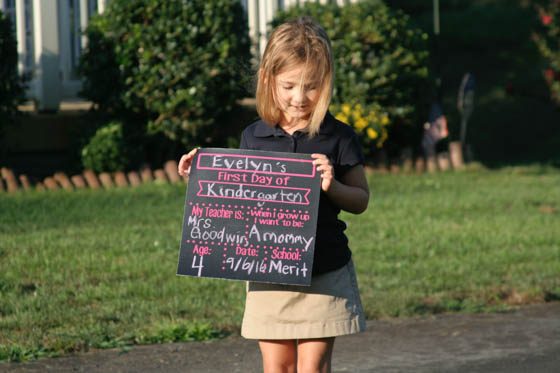 Evelyn's
First Day of
Kindergarten
My Teacher is:
Mrs
Goodwins
When I grow up
I want to be:
A mommy
Age:
4
Date:
9/6/16
School:
Merit